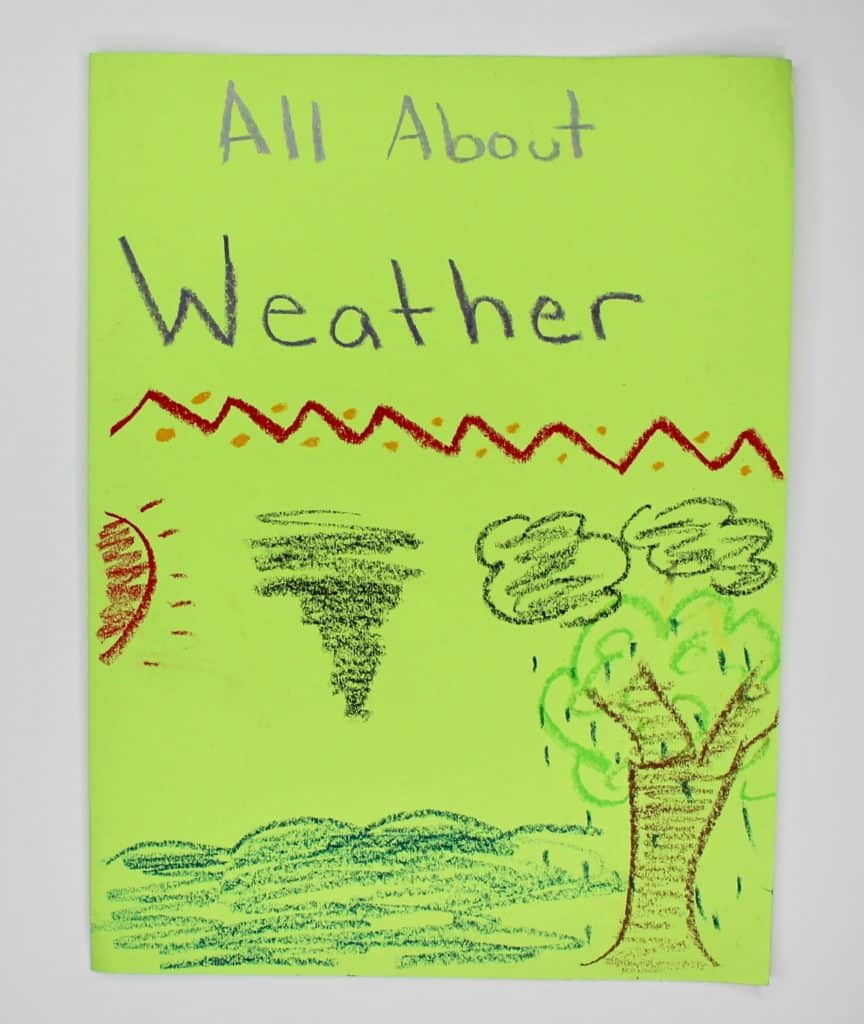 All About
Weather